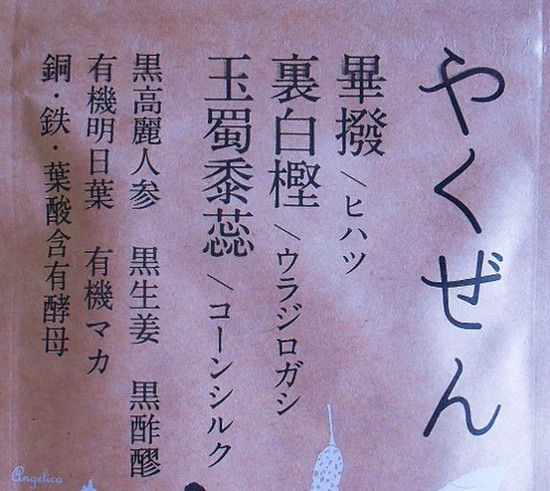 やくぜん
畢撥＼ヒハツ
裏白樫＼ウラジロガシ
玉蜀黍蕊＼コーンシルク
黒高麗人参　黒生姜　黒酢醪
有機明日葉　有機マカ
銅・鉄・葉酸含有酵母
Angelica